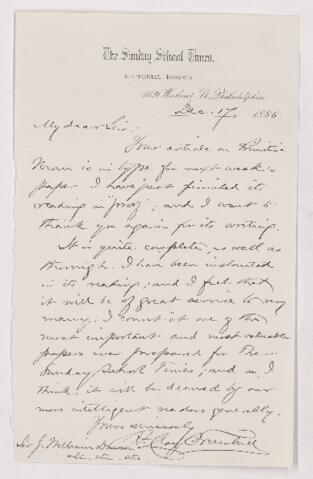 The Sunday School Times,
EDITORIAL ROOMS,
1031 Walnut St. Philadelphia
Dec. 17, 1886.
My dear Sir:
Your article on Primitive
Man is in type for next week's
paper. I have just finished its
reading in "proof", and I want to
thank you again for its writing.
It is quite complete, as well as
thorough. I have been instructed
in its reading; and I feel that
it will be of great service to very
many. I count it one of the
most important and most valuable
papers ever prepared for The
Sunday School Times; and so, I
think, it will be deemed by our
more intelligent readers generally.
Yours sincerely
H. Clay Trumbull
Sir J. William Dawson
etc. etc. etc.